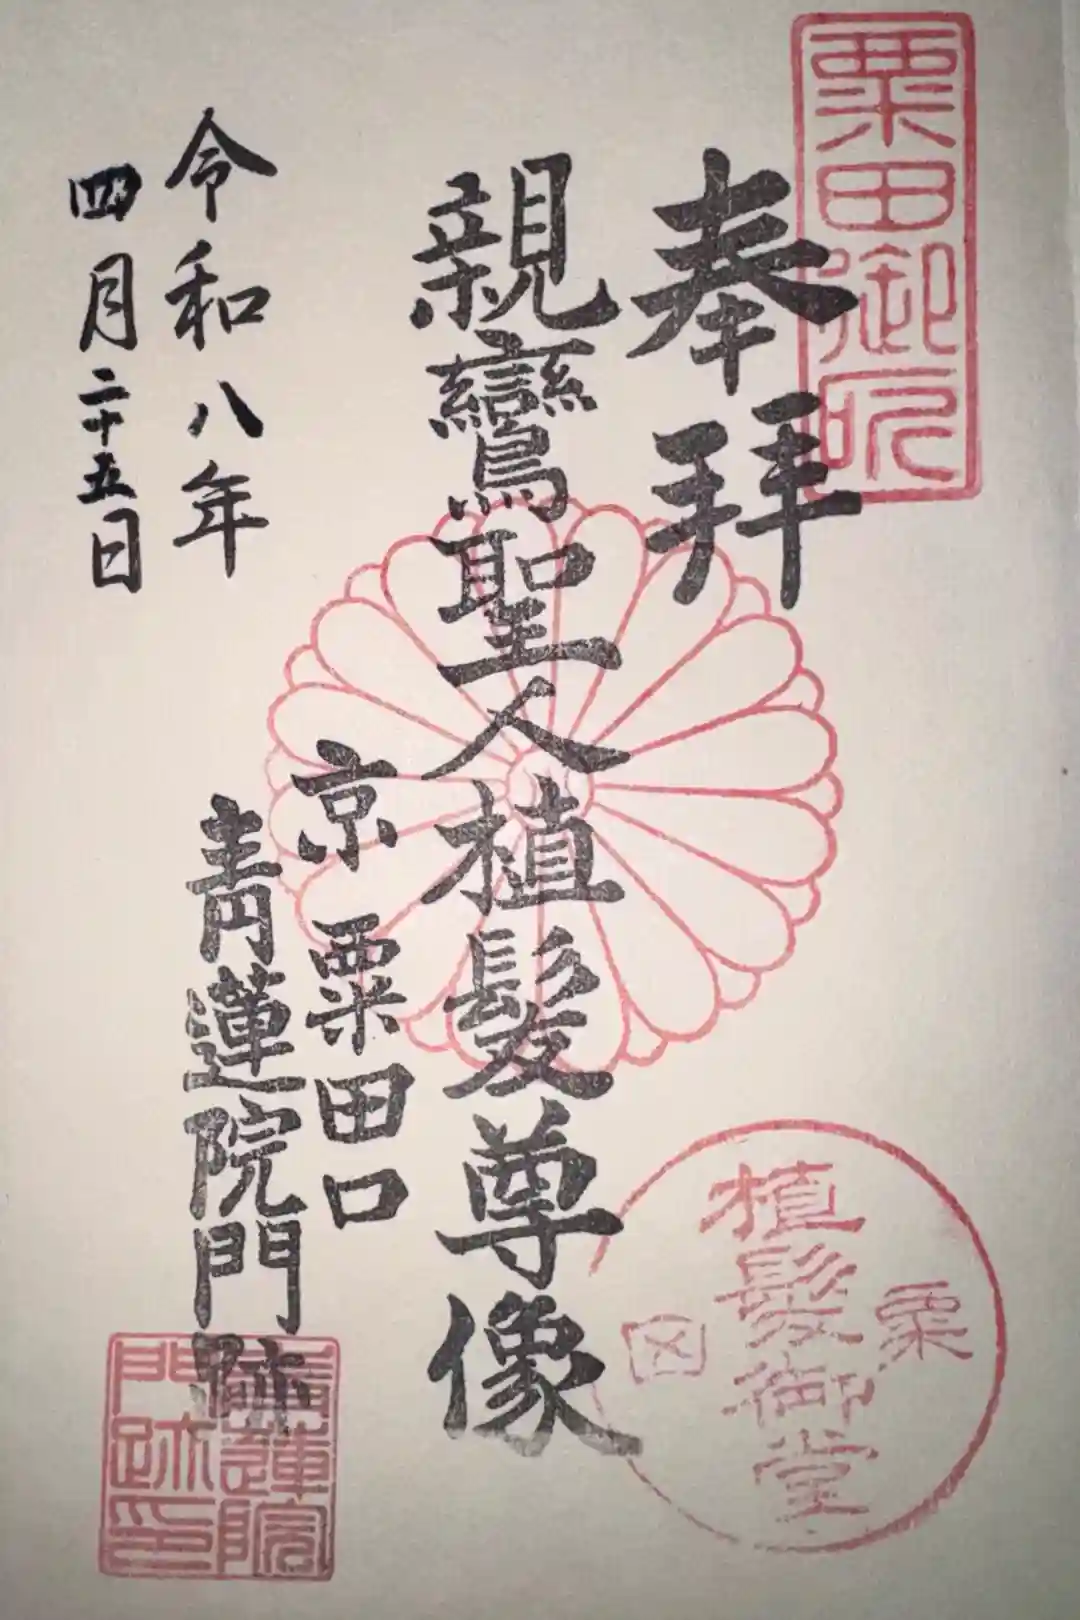 粟田御所
奉拝
親鸞聖人植髪尊像
京 粟田口
青蓮院門跡
令和八年
四月二十五日
粟
植髪御堂
田
青蓮院
門跡印